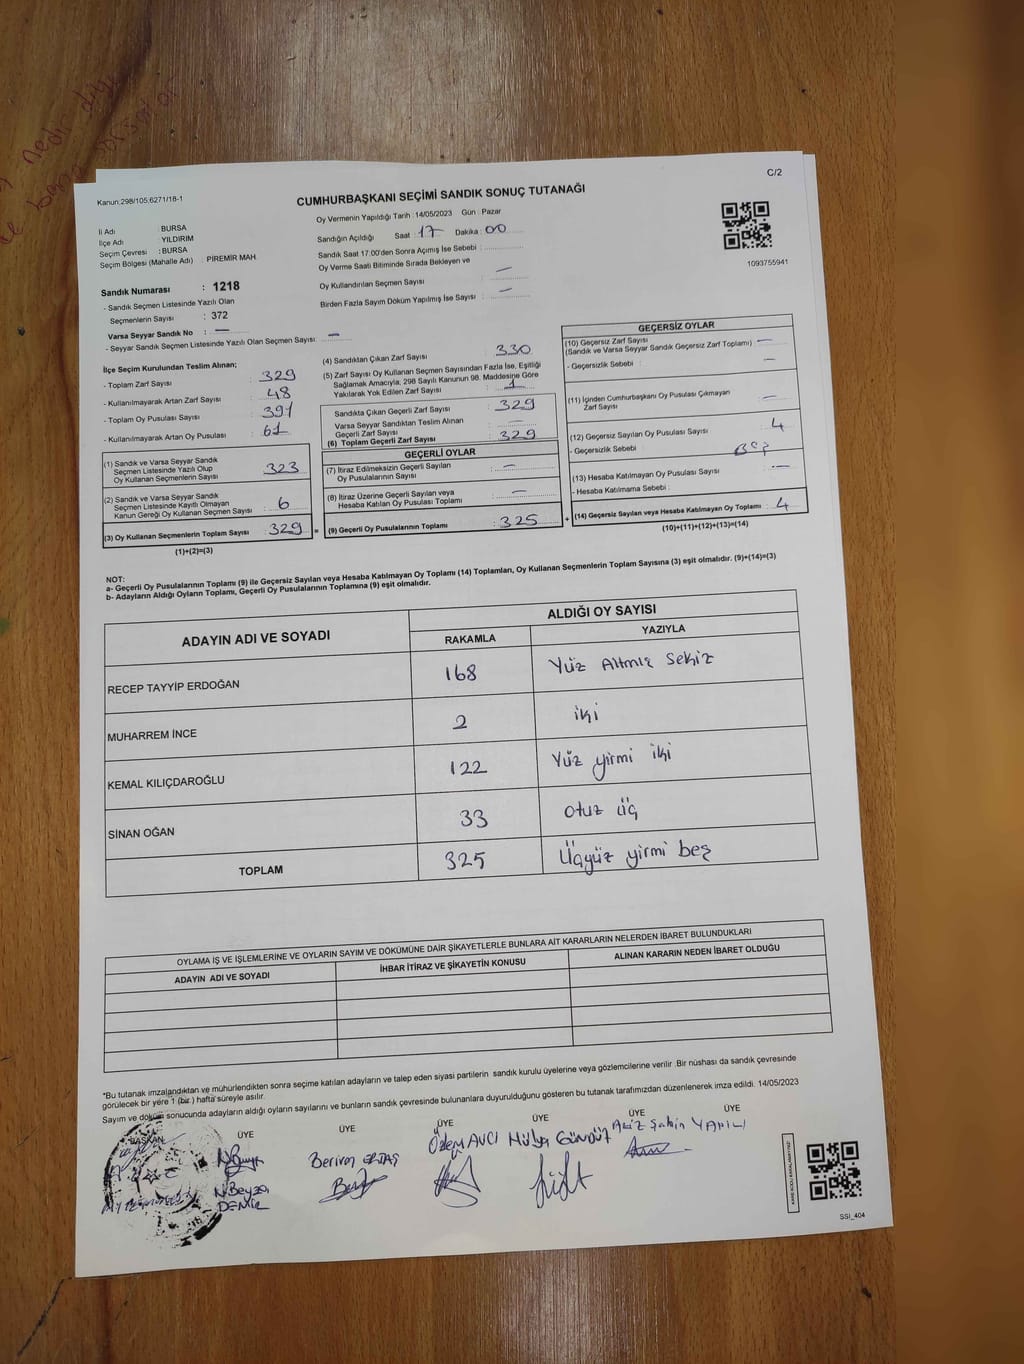 C/2
Kanun:298/105,6271/18-1
CUMHURBAŞKANI SEÇİMİ SANDIK SONUÇ TUTANAĞI
Oy Vermenin Yapıldığı Tarih : 14/05/2023 Gün : Pazar
İl Adı : BURSA
İlçe Adı : YILDIRIM
Seçim Çevresi : BURSA
Seçim Bölgesi (Mahalle Adı) : PİREMİR MAH
Sandığın Açıldığı Saat : 17 Dakika : 00
Sandık Saat 17.00'den Sonra Açımış İse Sebebi :
Oy Verme Saati Bitiminde Sırada Bekleyen ve
Oy Kullandırılan Seçmen Sayısı : —
Birden Fazla Sayım Döküm Yapılmış İse Sayısı : —
1093755941
Sandık Numarası : 1218
- Sandık Seçmen Listesinde Yazılı Olan
Seçmenlerin Sayısı : 372
Varsa Seyyar Sandık No : —
- Seyyar Sandık Seçmen Listesinde Yazılı Olan Seçmen Sayısı: —
İlçe Seçim Kurulundan Teslim Alınan;
- Toplam Zarf Sayısı : 329
- Kullanılmayarak Artan Zarf Sayısı : 48
- Toplam Oy Pusulası Sayısı : 391
- Kullanılmayarak Artan Oy Pusulası : 61
(1) Sandık ve Varsa Seyyar Sandık
Seçmen Listesinde Yazılı Olup
Oy Kullanan Seçmenlerin Sayısı : 323
(2) Sandık ve Varsa Seyyar Sandık
Seçmen Listesinde Kayıtlı Olmayan
Kanun Gereği Oy Kullanan Seçmen Sayısı : 6
(3) Oy Kullanan Seçmenlerin Toplam Sayısı : 329
(1)+(2)=(3)
(4) Sandıktan Çıkan Zarf Sayısı : 330
(5) Zarf Sayısı Oy Kullanan Seçmen Sayısından Fazla İse, Eşitliği
Sağlamak Amacıyla; 298 Sayılı Kanunun 98. Maddesine Göre
Yakılarak Yok Edilen Zarf Sayısı : 1
Sandıkta Çıkan Geçerli Zarf Sayısı : 329
Varsa Seyyar Sandıktan Teslim Alınan
Geçerli Zarf Sayısı : —
(6) Toplam Geçerli Zarf Sayısı : 329
GEÇERLİ OYLAR
(7) İtiraz Edilmeksizin Geçerli Sayılan
Oy Pusulalarının Sayısı : —
(8) İtiraz Üzerine Geçerli Sayılan veya
Hesaba Katılan Oy Pusulası Toplamı : —
= (9) Geçerli Oy Pusulalarının Toplamı : 325 +
GEÇERSİZ OYLAR
(10) Geçersiz Zarf Sayısı : —
(Sandık ve Varsa Seyyar Sandık Geçersiz Zarf Toplamı)
- Geçersizlik Sebebi : —
(11) İçinden Cumhurbaşkanı Oy Pusulası Çıkmayan
Zarf Sayısı : —
(12) Geçersiz Sayılan Oy Pusulası Sayısı : 4
- Geçersizlik Sebebi :
(13) Hesaba Katılmayan Oy Pusulası Sayısı : —
- Hesaba Katılmama Sebebi :
(14) Geçersiz Sayılan veya Hesaba Katılmayan Oy Toplamı : 4
(10)+(11)+(12)+(13)=(14)
NOT:
a- Geçerli Oy Pusulalarının Toplamı (9) ile Geçersiz Sayılan veya Hesaba Katılmayan Oy Toplamı (14) Toplamları, Oy Kullanan Seçmenlerin Toplam Sayısına (3) eşit olmalıdır. (9)+(14)=(3)
b- Adayların Aldığı Oyların Toplamı, Geçerli Oy Pusulalarının Toplamına (9) eşit olmalıdır.
ADAYIN ADI VE SOYADI ALDIĞI OY SAYISI
RAKAMLA YAZIYLA
RECEP TAYYİP ERDOĞAN 168 Yüz Altmış Sekiz
MUHARREM İNCE 2 iki
KEMAL KILIÇDAROĞLU 122 Yüz yirmi iki
SİNAN OĞAN 33 otuz üç
TOPLAM 325 Üçyüz yirmi beş
OYLAMA İŞ VE İŞLEMLERİNE VE OYLARIN SAYIM VE DÖKÜMÜNE DAİR ŞİKAYETLERLE BUNLARA AİT KARARLARIN NELERDEN İBARET BULUNDUKLARI
ADAYIN ADI VE SOYADI İHBAR İTİRAZ VE ŞİKAYETİN KONUSU ALINAN KARARIN NEDEN İBARET OLDUĞU
*Bu tutanak imzalandıktan ve mühürlendikten sonra seçime katılan adayların ve talep eden siyasi partilerin sandık kurulu üyelerine veya gözlemcilerine verilir .Bir nüshası da sandık çevresinde
görülecek bir yere 1 (bir ) hafta süreyle asılır.
Sayım ve döküm sonucunda adayların aldığı oyların sayılarını ve bunların sandık çevresinde bulunanlara duyurulduğunu gösteren bu tutanak tarafımızdan düzenlenerek imza edildi. 14/05/2023
BAŞKAN ÜYE ÜYE ÜYE ÜYE ÜYE ÜYE
Berivan ERTAŞ Özlem AVCI Hülya GÜNDÜZ Aziz Şahin YAHLİ
N.Beyza
DEMİR
SSİ_404